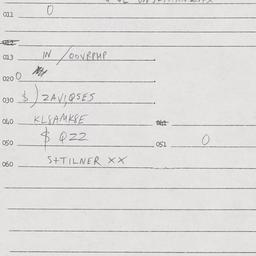 011 0
013 IN /OOVRPMP
020 0
030 $) ZAVIQSES
040 KLSAMKSE
050 $ QZZ 051 0
060 S+TILNER XX